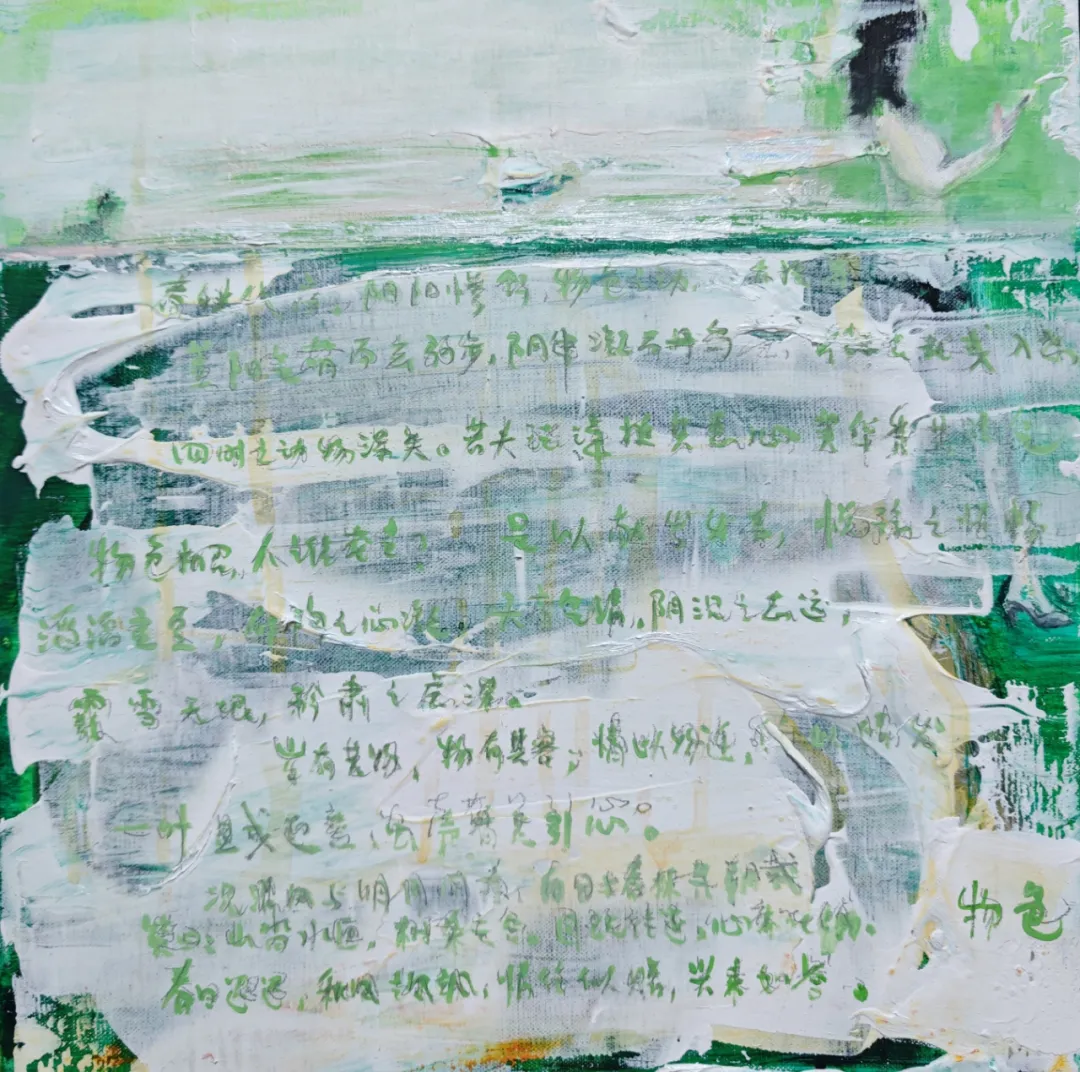 春秋代序,阴阳惨舒,物色之动,
盖阳气萌而玄驹步,阴律凝而丹鸟 入感,
四时之动物深矣。若夫珪璋挺其惠心 英华秀其
物色相召,人谁获安? 是以献岁发春,悦豫之情畅
滔滔孟夏,郁陶之心凝。天高气清,阴沉之志远,
霰雪无垠,矜肃之虑深。
岁有其物,物有其容;情以物迁,辞以情发
一叶且或迎意,虫声有足引心。
况清风与明月同夜,白日与春林共朝哉
赞曰:山沓水匝,树杂云合。目既往还,心亦吐纳。
春日迟迟,秋风飒飒,情往似赠,兴来如答。
物色